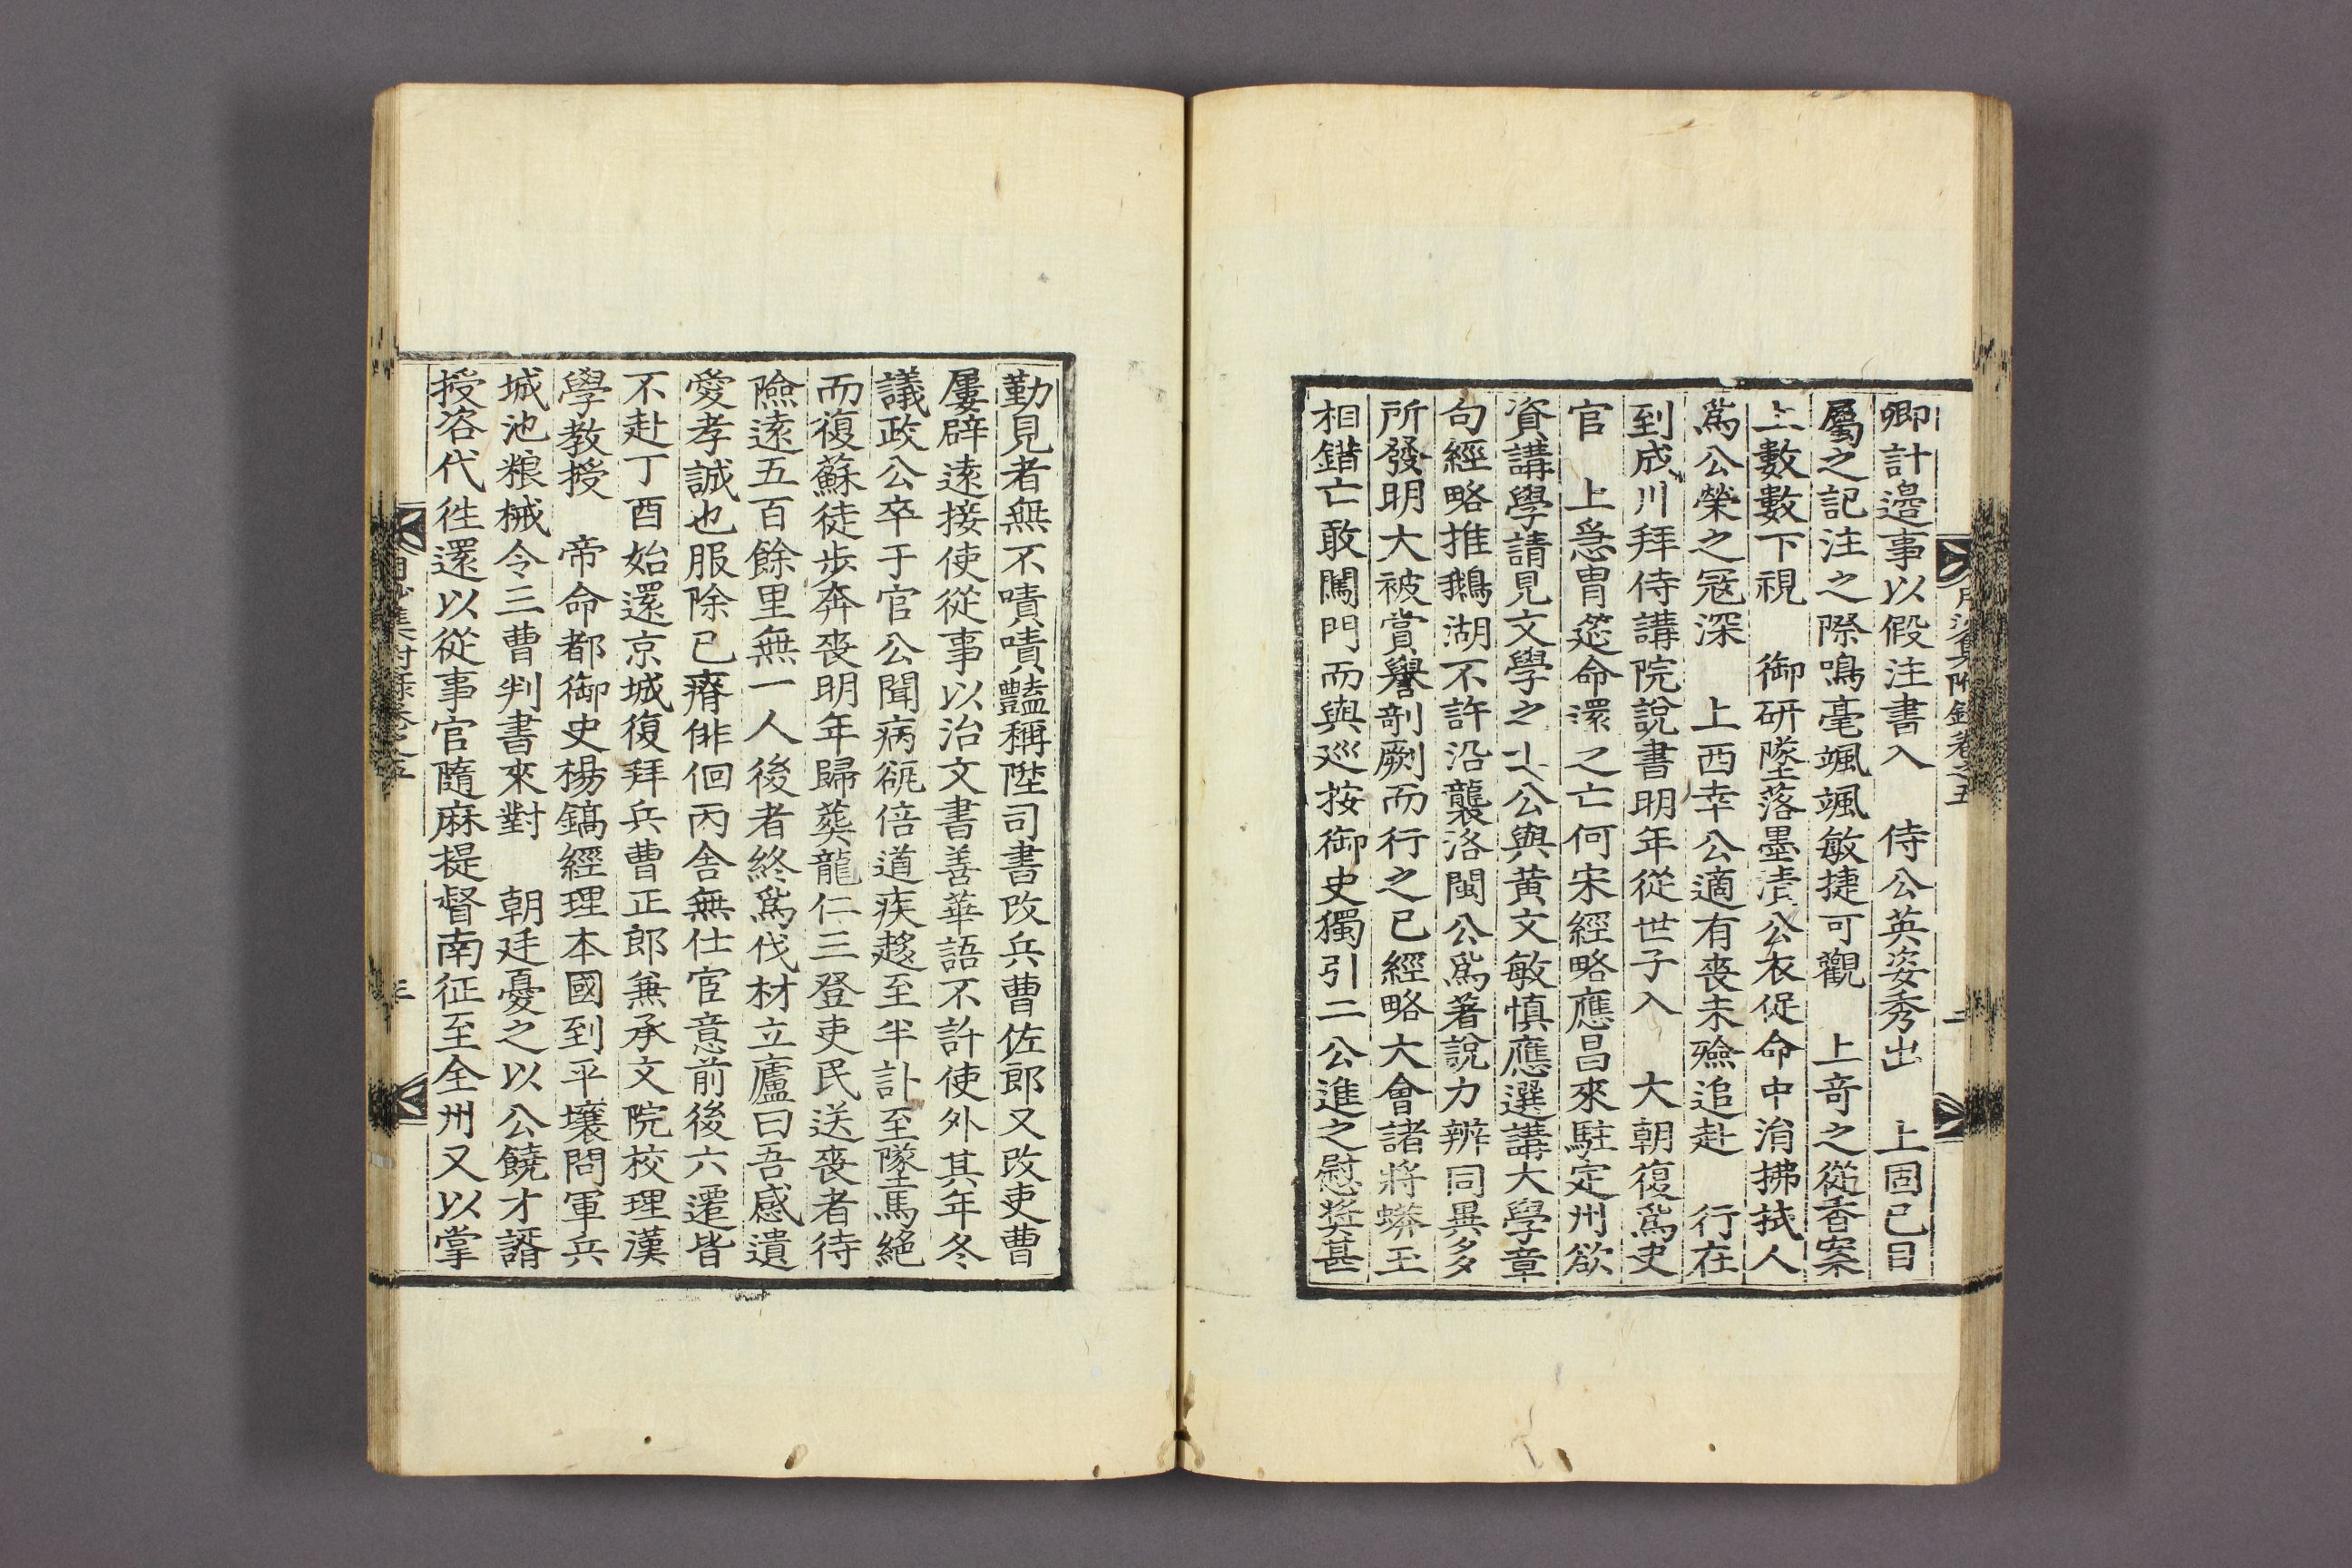 卿計邊事以假注書入　侍公英姿秀出　上固已目
屬之記注之際鳴毫颯颯敏捷可觀　上奇之從香案
上數數下視　御研墜落墨漬公衣促命中涓拂拭人
爲公榮之冦深　上西幸公適有喪未殮追赴　行在
到成川拜侍講院說書明年從世子入　大朝復爲吏
官　上急胄筵命還之亡何宋經略應昌來駐定州欲
資講學請見文學之士公與黃文敏愼應選講大學章
句經略推鵝湖不許沿襲洛閩公爲著說力辨同異多
所發明大被賞譽剞劂而行之已經略大會諸將蟒玉
相錯亡敢闖門而與巡按御史獨引二公進之慰奬甚
勤見者無不嘖嘖豔稱陞司書改兵曹佐郎又改吏曹
屢辟遠接使從事以治文書善華語不許使外其年冬
議政公卒于官公聞病㼝倍道疾趍至半訃至墜馬絕
而復蘇徒步奔喪明年歸葬龍仁三登吏民送喪者待
險遠五百餘里無一人後者終爲伐材立廬曰吾感遺
愛孝誠也服除已瘠俳佪丙舍無仕宦意前後六遷皆
不赴丁酉始還京城復拜兵曹正郎兼承文院校理漢
學教授　帝命都御史楊鎬經理本國到平壤問軍兵
城池粮械令三曹判書來對　朝廷憂之以公饒才諝
授咨代徃還以從事官隨麻提督南征至全州又以掌